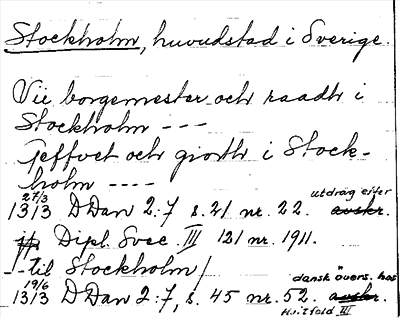 Stockholm, huvudstad i Sverige.
Vii borgemester och raadh i
Stockholm ---
Jeffvet och giorth i Stock-
holm ----
27/3
1313 D Dan 2:7 s. 21 nr. 22. utdrag efter avskr.
jfr Dipl. Svec. III 121 nr. 1911.
--til Stockholm/
19/6
1313 D Dan 2:7, s. 45 nr. 52. dansk övers. hos avskr.
Hvitfeld III